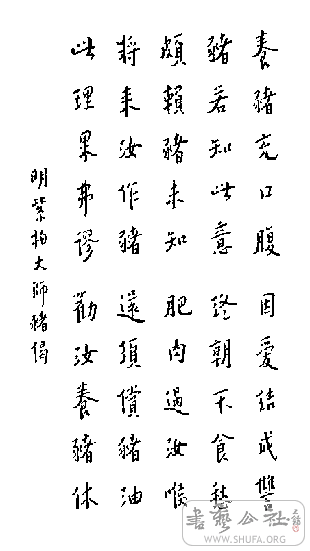 養豬充口腹 因愛結成讐
豬若知此意 終朝不食愁
頗賴豬未知 肥肉過汝喉
將来汝作豬 還須償豬油
此理果弗謬 勸汝養豬休
明紫柏大師豬偈
書藝公社
WWW.SHUFA.ORG